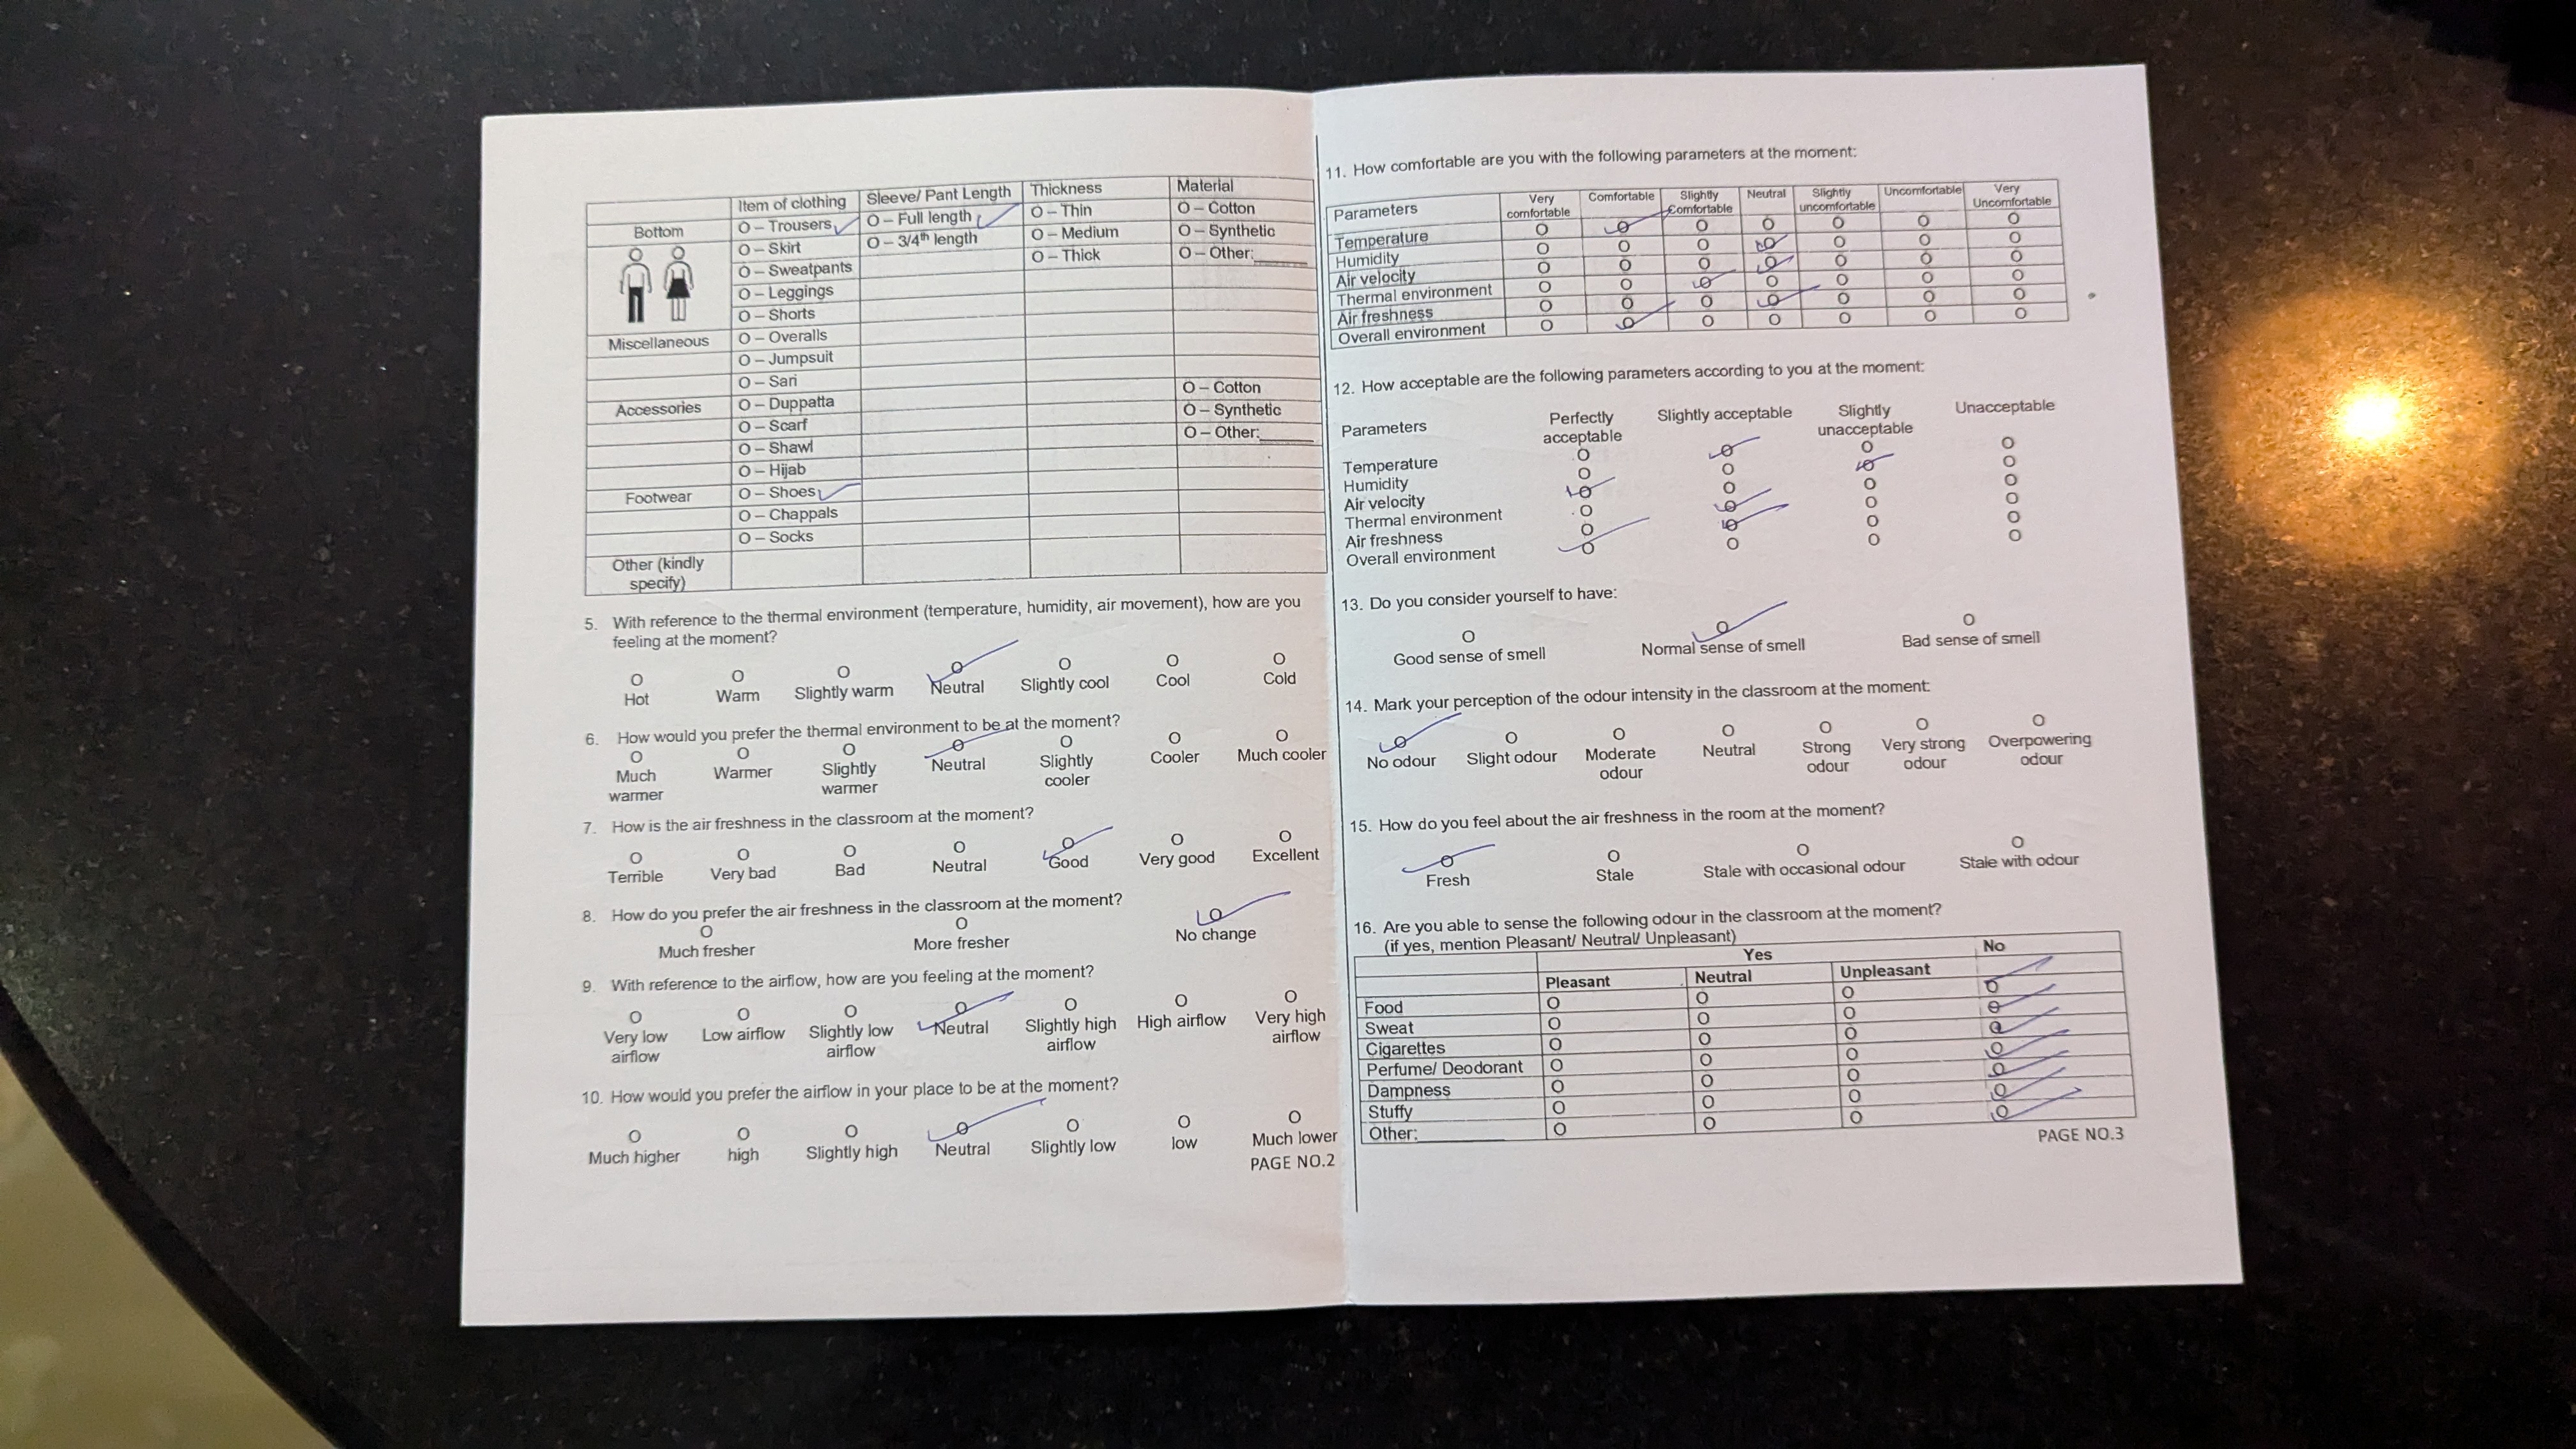 Item of clothing Sleeve/ Pant Length Thickness Material
Bottom O – Trousers ✓ O – Full length ✓ O – Thin O – Cotton
O – Skirt O – 3/4th length O – Medium O – Synthetic
O – Sweatpants O – Thick O – Other:______
O – Leggings
O – Shorts
Miscellaneous O – Overalls
O – Jumpsuit
O – Sari
Accessories O – Duppatta O – Cotton
O – Scarf O – Synthetic
O – Shawl O – Other:______
O – Hijab
Footwear O – Shoes ✓
O – Chappals
O – Socks
Other (kindly
specify)
5. With reference to the thermal environment (temperature, humidity, air movement), how are you
feeling at the moment?
O O O O ✓ O O O
Hot Warm Slightly warm Neutral Slightly cool Cool Cold
6. How would you prefer the thermal environment to be at the moment?
O O O O ✓ O O O
Much Warmer Slightly Neutral Slightly Cooler Much cooler
warmer warmer cooler
7. How is the air freshness in the classroom at the moment?
O O O O O ✓ O O
Terrible Very bad Bad Neutral Good Very good Excellent
8. How do you prefer the air freshness in the classroom at the moment?
O O O ✓
Much fresher More fresher No change
9. With reference to the airflow, how are you feeling at the moment?
O O O O ✓ O O O
Very low Low airflow Slightly low Neutral Slightly high High airflow Very high
airflow airflow airflow airflow
10. How would you prefer the airflow in your place to be at the moment?
O O O O ✓ O O O
Much higher high Slightly high Neutral Slightly low low Much lower
PAGE NO.2
11. How comfortable are you with the following parameters at the moment:
Parameters Very comfortable Comfortable Slightly Comfortable Neutral Slightly uncomfortable Uncomfortable Very Uncomfortable
Temperature O O ✓ O O O O O
Humidity O O O O ✓ O O O
Air velocity O O O O ✓ O O O
Thermal environment O O O ✓ O O O O
Air freshness O O O O ✓ O O O
Overall environment O O ✓ O O O O O
12. How acceptable are the following parameters according to you at the moment:
Parameters Perfectly acceptable Slightly acceptable Slightly unacceptable Unacceptable
Temperature O O ✓ O O
Humidity O O O ✓ O
Air velocity O ✓ O O O
Thermal environment O O ✓ O O
Air freshness O O ✓ O O
Overall environment O ✓ O O O
13. Do you consider yourself to have:
O O ✓ O
Good sense of smell Normal sense of smell Bad sense of smell
14. Mark your perception of the odour intensity in the classroom at the moment:
O ✓ O O O O O O
No odour Slight odour Moderate Neutral Strong Very strong Overpowering
odour odour odour odour
15. How do you feel about the air freshness in the room at the moment?
O ✓ O O O
Fresh Stale Stale with occasional odour Stale with odour
16. Are you able to sense the following odour in the classroom at the moment?
(if yes, mention Pleasant/ Neutral/ Unpleasant)
Yes No
Pleasant Neutral Unpleasant
Food O O O O ✓
Sweat O O O O ✓
Cigarettes O O O O ✓
Perfume/ Deodorant O O O O ✓
Dampness O O O O ✓
Stuffy O O O O ✓
Other:__________ O O O O ✓
PAGE NO.3